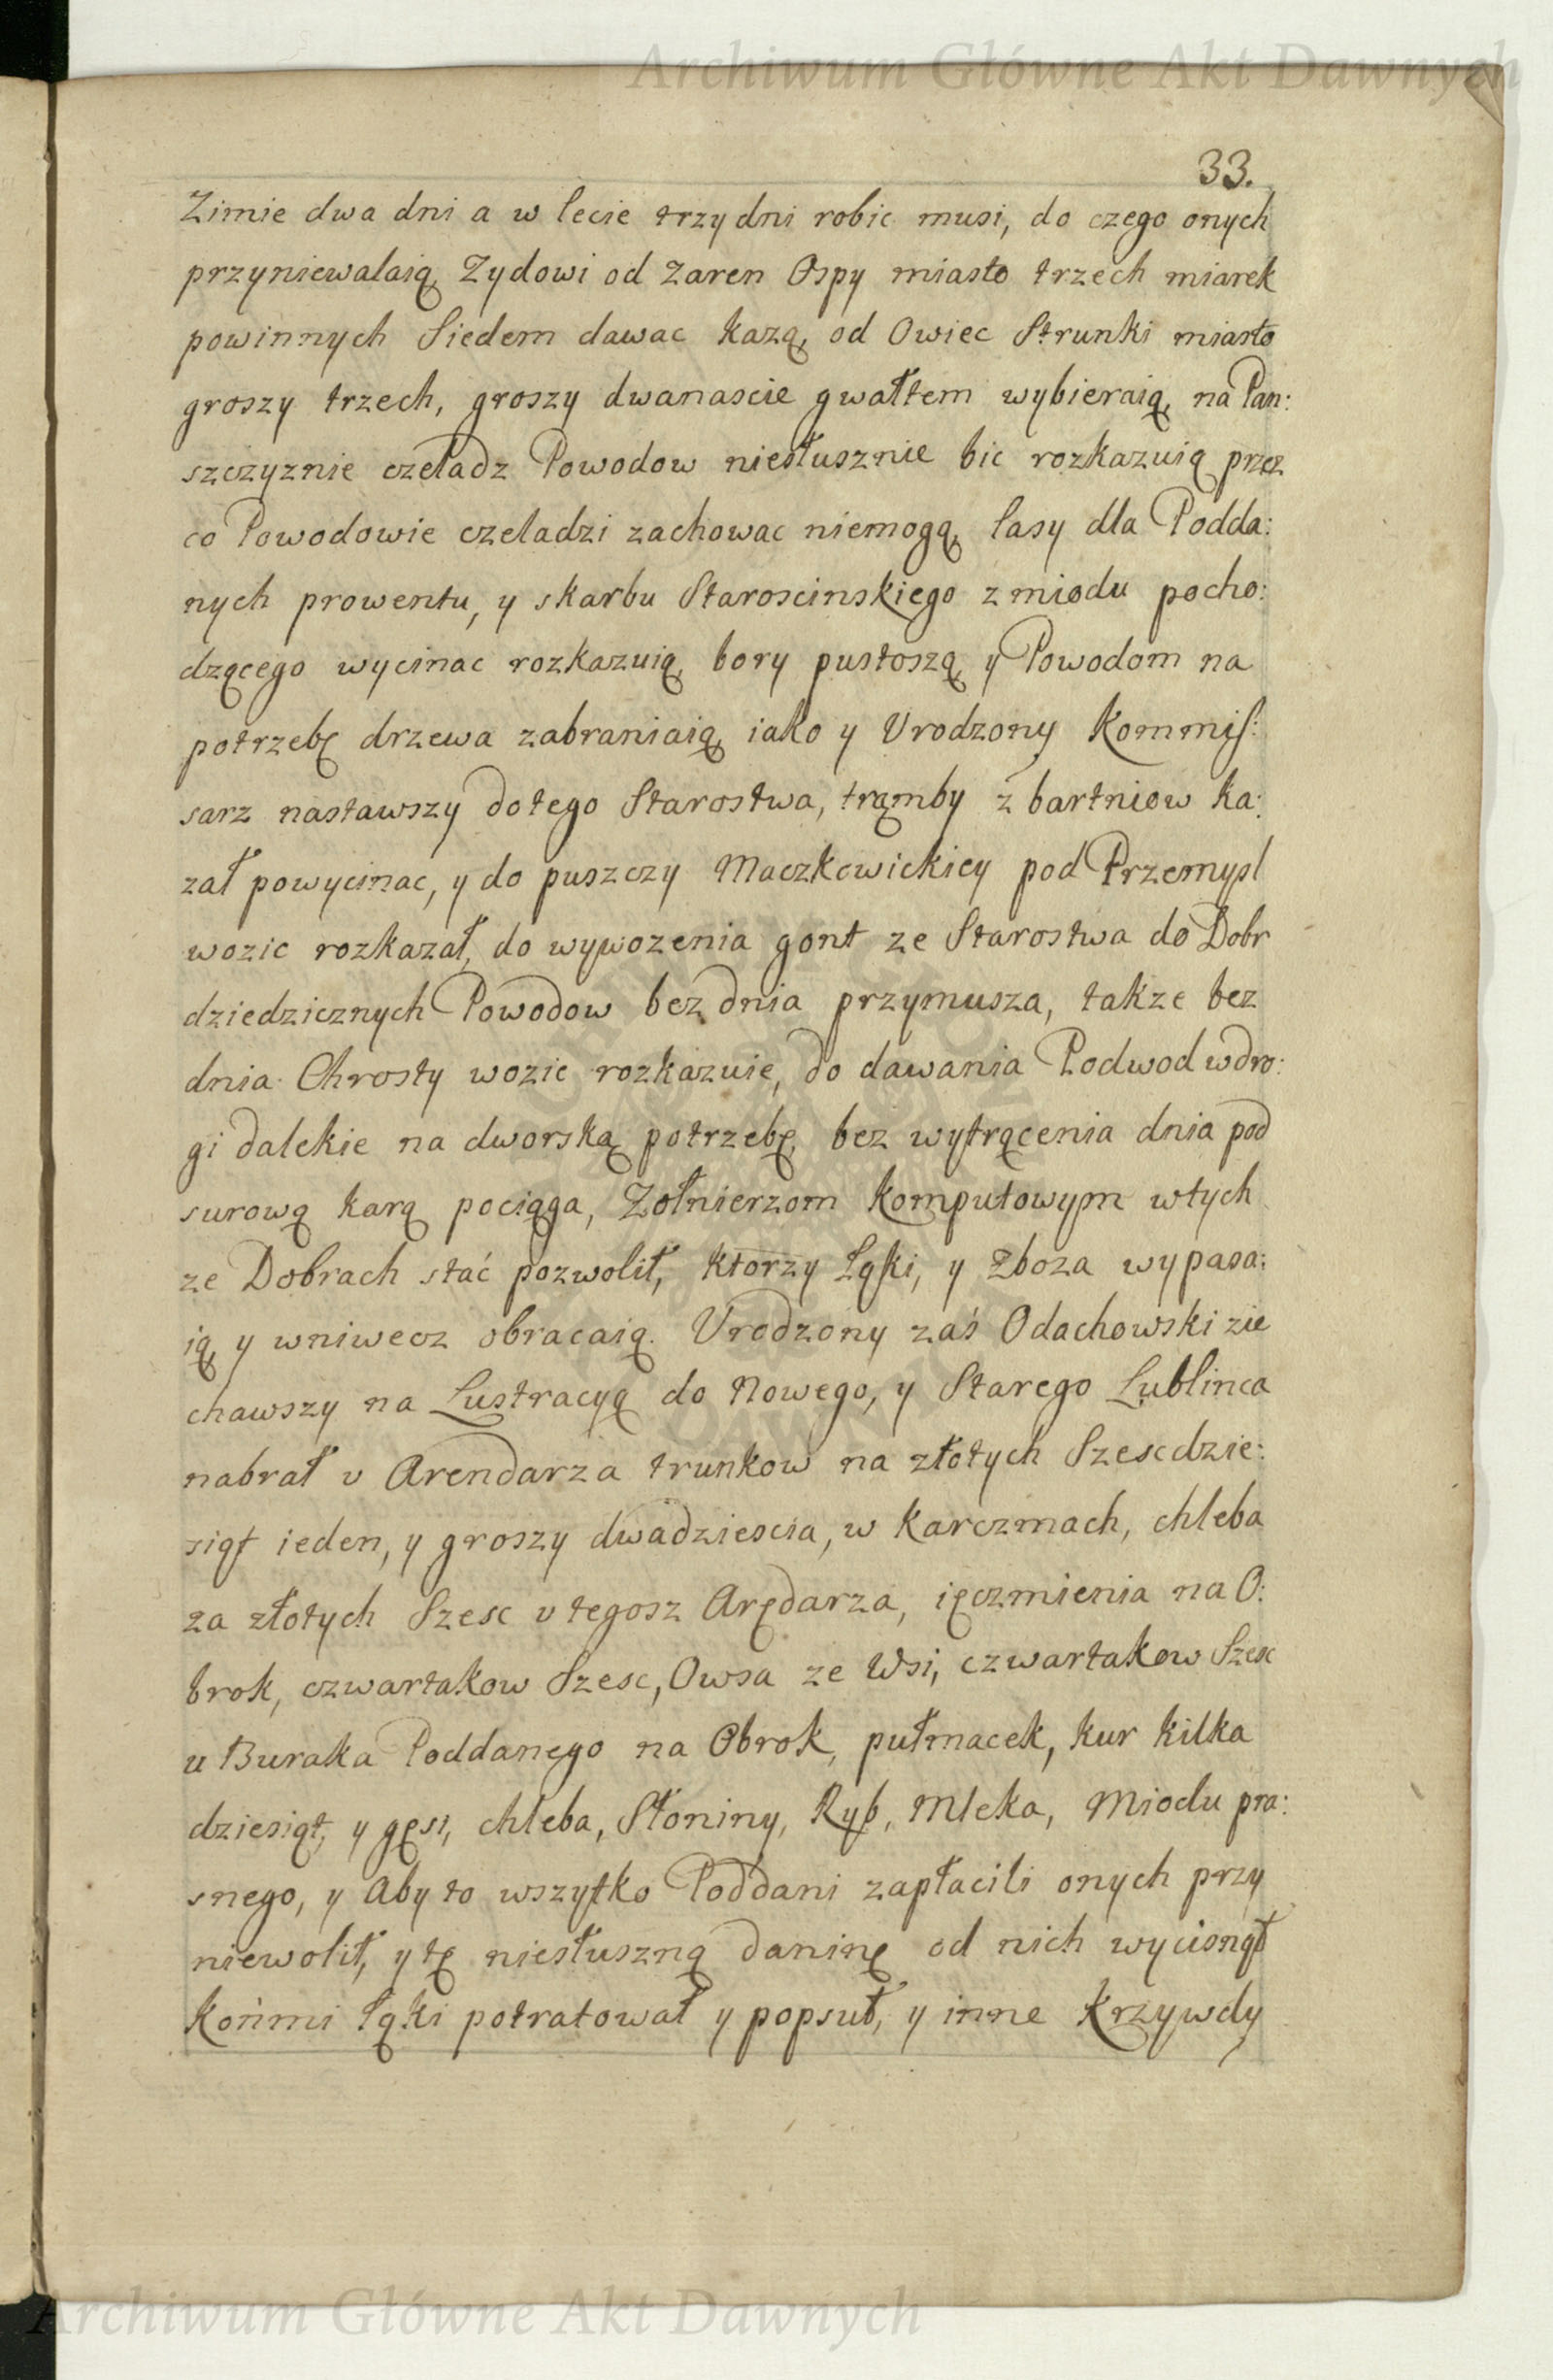 Archiwum Główne Akt Dawnych
33.
Zimie dwa dni a w lecie trzy dni robic musi, do czego onych
przyniewalaią, Zydowi od Zaren Ospy miasto trzech miarek
powinnych Siedem dawac kazą, od Owiec Strunki miasto
groszy trzech, groszy dwanascie gwałtem wybieraią, na Pan:
szczyznie czeladz Powodow niesłusznie bic rozkazuią przez
co Powodowie czeladzi zachowac niemogą, lasy dla Podda:
nych prowentu, y skarbu Staroscinskiego z miodu pocho:
dzącego wycinac rozkazuią, bory pustoszą, y Powodom na
potrzebę drzewa zabraniaią, iako y Vrodzony Kommis:
sarz nastawszy dotego Starostwa, trąmby z bartniow ka:
zał powycinac, y do puszczy Maczkowickiey pod Przemysl
wozic rozkazał, do wywozenia gont ze Starostwa do Dobr
dziedzicznych Powodow bez dnia przymusza, takze bez
dnia Chrosty wozic rozkazuie, do dawania Podwod wdro:
gi dalekie na dworską potrzebę, bez wytrącenia dnia pod
surową karą pociąga, Zołnierzom Komputowym wtych
ze Dobrach stać pozwolił, ktorzy Łąki, y Zboza wypasa:
ią, y wniwecz obracaią. Vrodzony zaś Odachowski zie
chawszy na Lustracyą do Nowego, y Starego Lublinca
nabrał v Arendarza trunkow na złotych Szescdzie:
siąt ieden, y groszy dwadziescia, w karczmach, chleba
za złotych Szesc v tegosz Arędarza, ięczmienia na O:
brok, czwartakow Szesc, Owsa ze Wsi, czwartakow Szesc
u Buraka Poddanego na Obrok, pułmacek, kur kilka
dziesiąt, y gęsi, chleba, Słoniny, Ryb, Mleka, Miodu pra:
snego, y Aby to wszytko Poddani zapłacili onych przy
niewolił, y tę niesłuszną daninę od nich wycisnął
końmi łąki potratował y popsuł, y inne krzywdy
Archiwum Główne Akt Dawnych